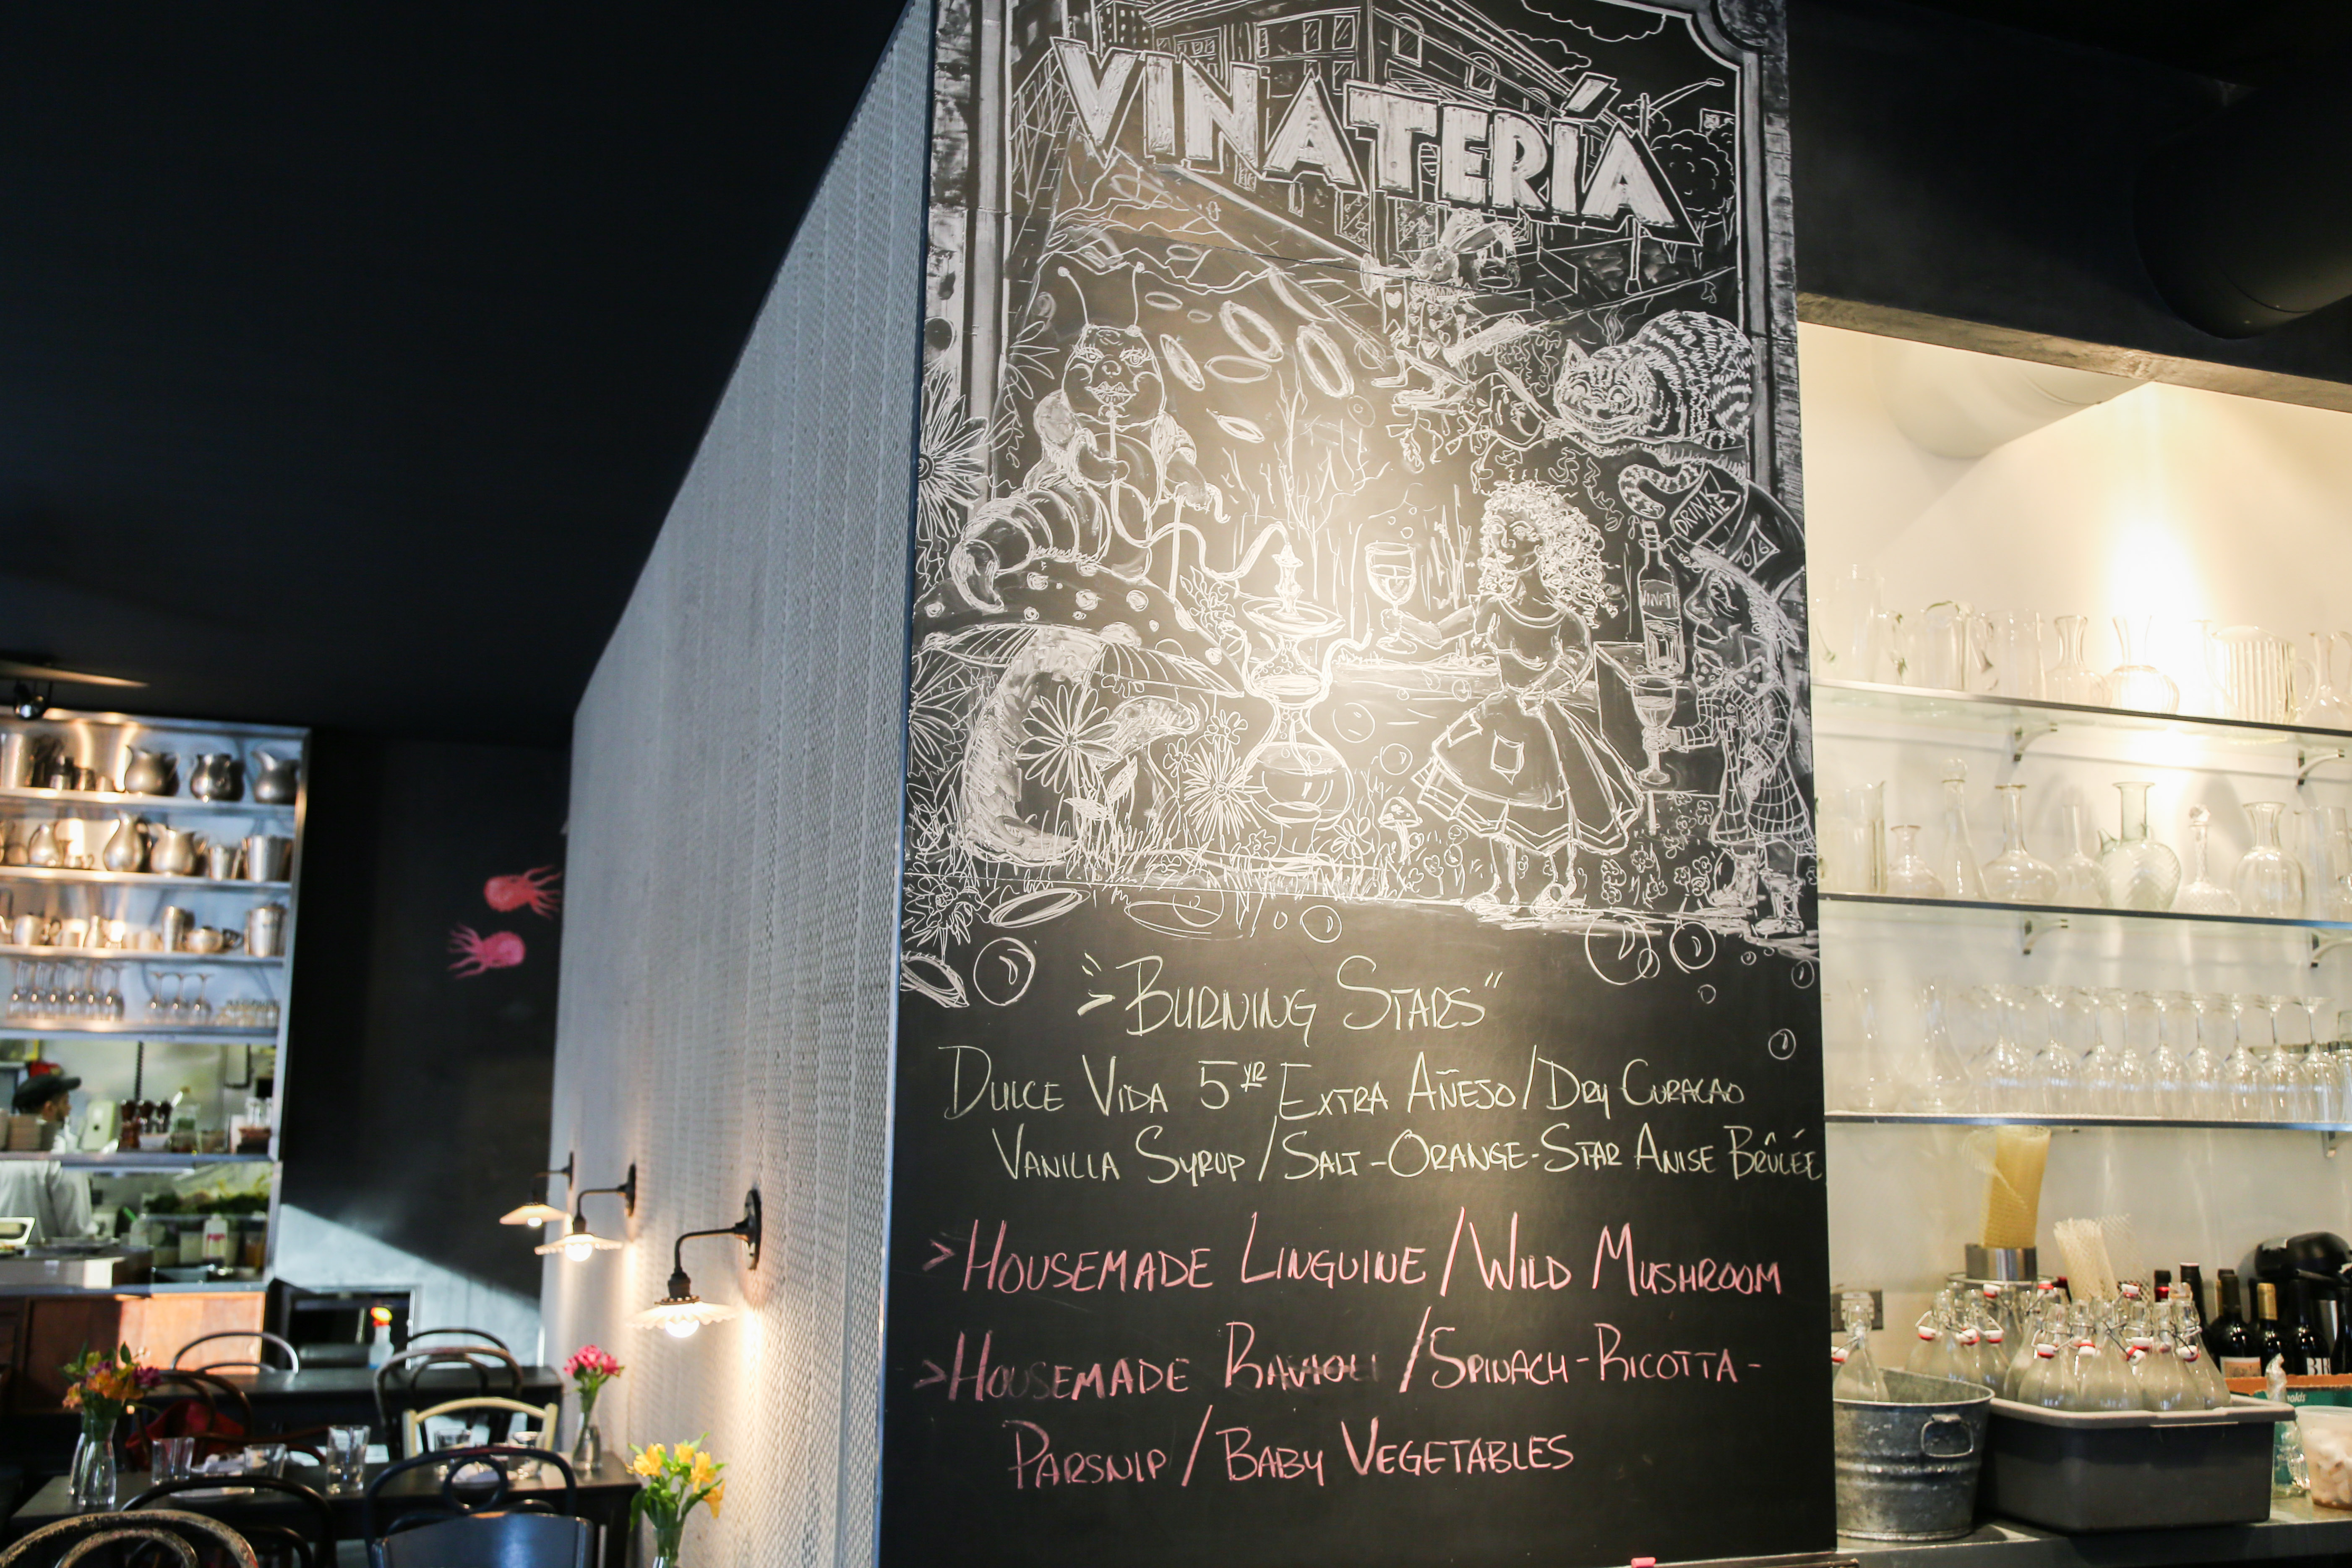 VINATERÍA
DRINK
ME
10/6
VINAT
> "BURNING STARS"
DULCE VIDA 5YR EXTRA AÑEJO/DRY CURACAO
VANILLA SYRUP/SALT-ORANGE-STAR ANISE BRÛLÉE
>HOUSEMADE LINGUINE/WILD MUSHROOM
>HOUSEMADE RAVIOLI/SPINACH-RICOTTA-
PARSNIP/BABY VEGETABLES